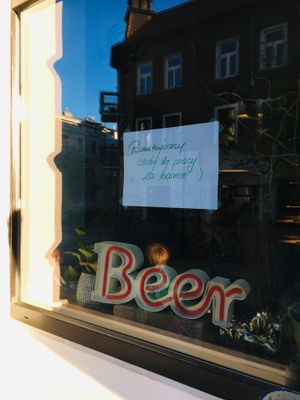 Poszukujemy
osoby do pracy
za barem :)
Beer